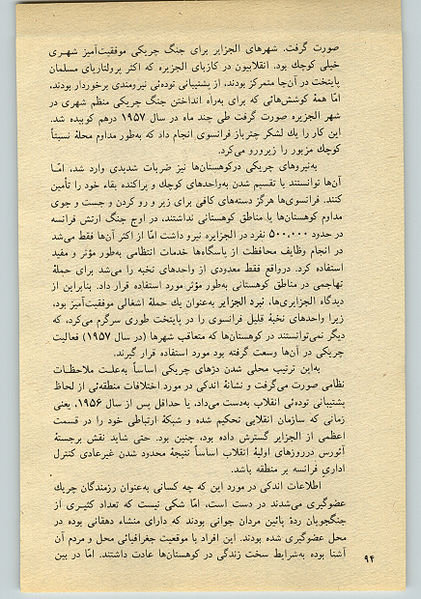 صورت گرفت. شهرهای الجزایر برای جنگ چریکی موفقیت‌آمیز شهـری
خیلی کوچك بود. انقلابیون در کازبای الجزیره که اکثر پرولتاریای مسلمان
پایتخت در آن‌جا متمرکز بودند، از پشتیبانی توده‌ئی نیرومندی برخوردار بودند،
امّا همهٔ کوشش‌هائی که برای به‌راه انداختن جنگ چریکی منظم شهری در
شهر الجزیره صورت گرفت طی چند ماه در سال ۱۹۵۷ درهم کوبیده شد.
این کار را یك لشکر چترباز فرانسوی انجام داد که به‌طور مداوم محلهٔ نسبتاً
کوچك مزبور را زیرورو می‌کرد.
به‌نیروهای چریکی درکوهستان‌ها نیز ضربات شدیدی وارد شد، امّـا
آن‌ها توانستند با تقسیم شدن به‌واحدهای کوچك و پراکنده بقاء خود را تأمین
کنند. فرانسوی‌ها هرگز دسته‌های کافی برای زیر و رو کردن و جست و جوی
مداوم کوهستان‌ها یا مناطق کوهستانی نداشتند، در اوج جنگ ارتش فرانسه
در حدود ۵۰۰،۰۰۰ نفرد در الجزایره نیرو داشت امّا از اکثر آن‌ها فقط می‌شد
در انجام وظایف محافظت از پاسگاه‌ها خدمات انتظامی به‌طور مؤثر و مفید
استفاده کرد. درواقع فقط معدودی از واحدهای نخبه را می‌شد برای حملهٔ
تهاجمی در مناطق کوهستانی به‌طور مؤثر مورد استفاده قرار داد. بنابراین از
دیدگاه الجزایری‌ها، نبرد الجزایر به‌عنوان یك حملهٔ اشغالی موفقیت‌آمیز بود،
زیرا واحدهای نخبهٔ قلیل فرانسوی را در پایتخت طوری سرگرم می‌کرد، که
دیگر نمی‌توانستند در کوهستان‌ها که متعاقب شهرها (در سال ۱۹۵۷) فعالیت
چریکی در آن‌ها وسعت گرفته بود مورد استفاده قرار گیرند.
به‌این ترتیب محلی شدن دژهای چریکی اساساً به‌علـت ملاحظـات
نظامی صورت می‌گرفت و نشانهٔ اندکی در مورد اختلافات منطقه‌ئی از لحاظ
پشتیبانی توده‌ئی انقلاب به‌دست می‌داد، یا حداقل پس از سال ۱۹۵۶، یعنی
زمانی که سازمان انقلابی تحکیم شده و شبکهٔ ارتباطی خود را در قسمت
اعظمی از الجزایر گسترش داده بود، چنین بود. حتی شاید نقش برجستهٔ
آئورس درروزهای اولیهٔ انقلاب اساساً نتیجهٔ محدود شدن غیرعادی کنترل
اداری فرانسه بر منطقه باشد.
اطلاعات اندکی در مورد این که چه کسانی به‌عنوان رزمندگان چریك
عضوگیری می‌شدند در دست است، امّا شکی نیست که تعداد کثیـری از
جنگجویان ردهٔ پائین مردان جوانی بودند که دارای منشاء دهقانی بوده در
محل عضوگیری شده بودند. این افراد با موقعیت جغرافیائی محل و مردم آن
آشنا بوده به‌شرایط سخت زندگی در کوهستان‌ها عادت داشتند. امّا در بین
۹۴